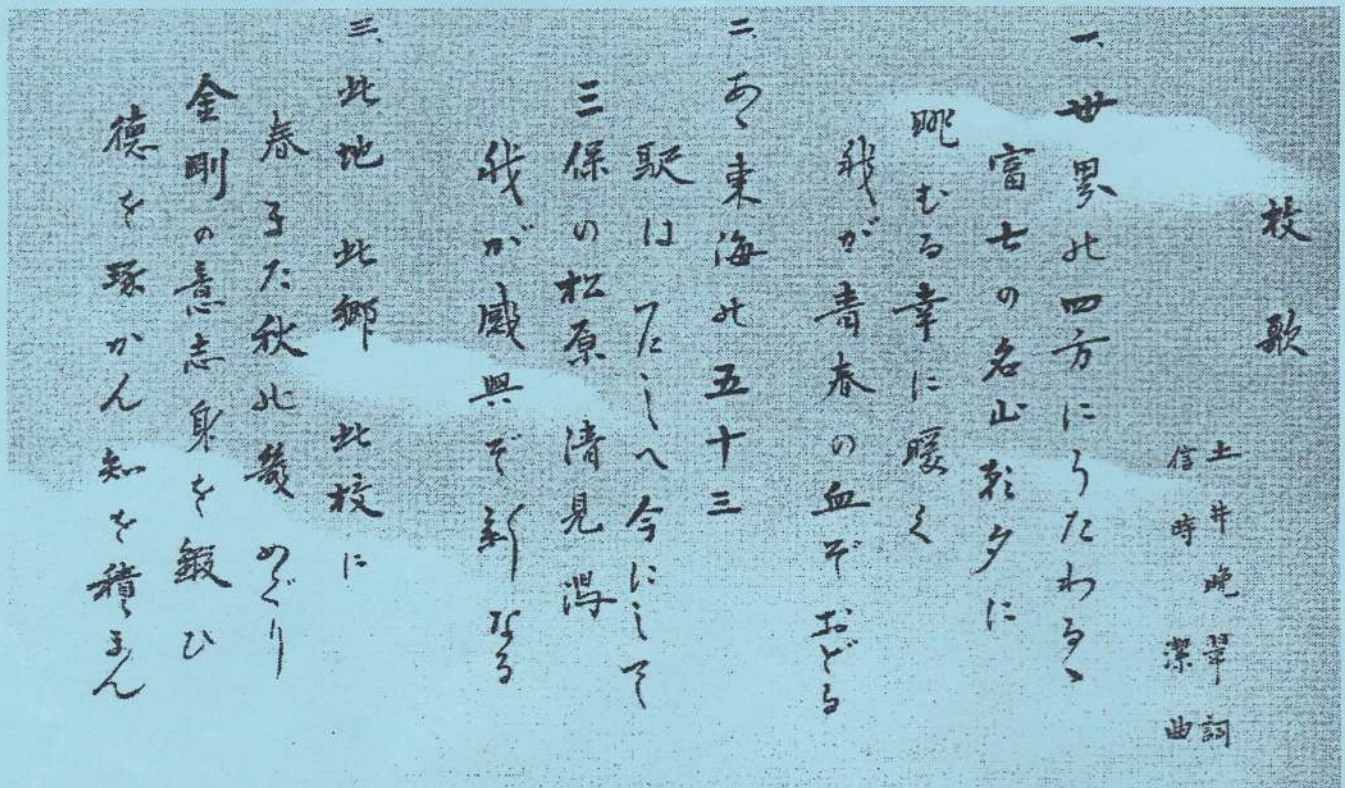 校歌
土井晩翠詞
信時潔曲
一、世界の四方にうたわるゝ
富士の名山朝夕に
眺むる幸に暖く
我が青春の血ぞおどる
二、あゝ東海の五十三
駅は いにしへ今にして
三保の松原 清見潟
我が感興ぞ新なる
三、此地 此郷 此校に
春また秋の幾めぐり
金剛の意志身を鍛ひ
徳を琢かん知を積まん